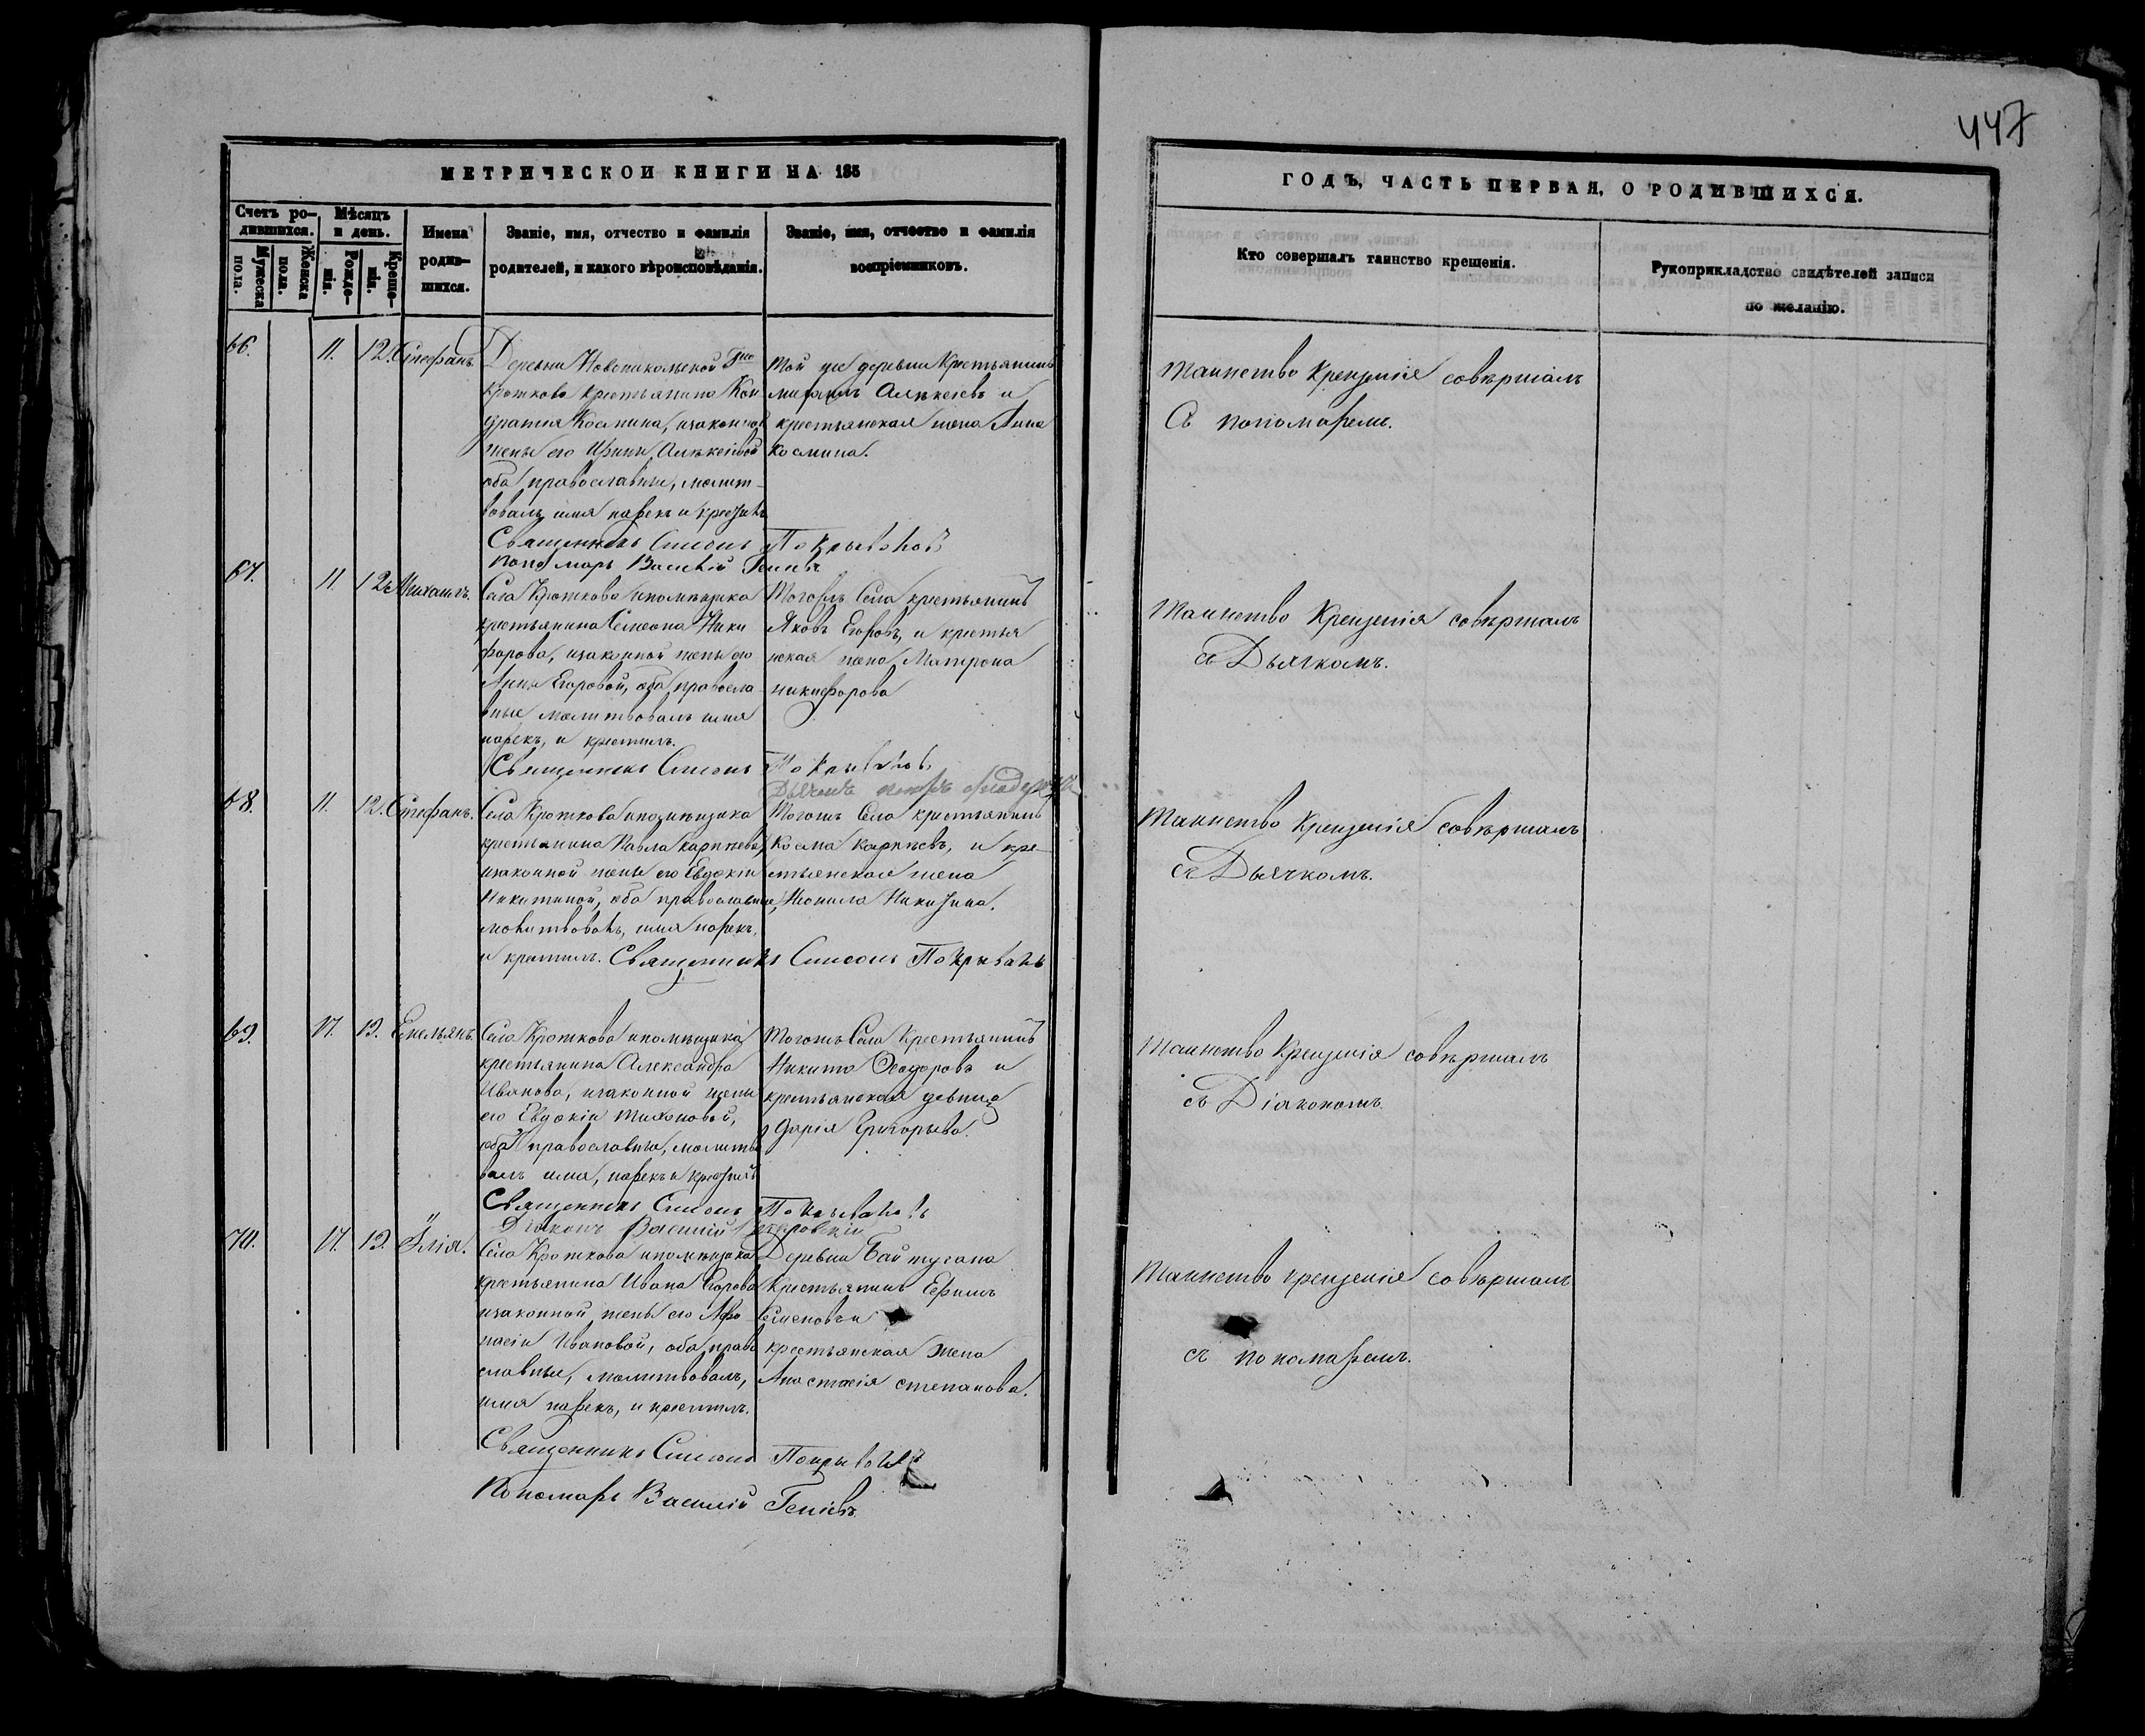 447
МЕТРИЧЕСКОЙ КНИГИ НА 185
ГОДЪ, ЧАСТЬ ПЕРВАЯ, О РОДИВШИХСЯ.
Счетъ ро-
дившихся.
Мужеска
пола.
Женска
пола.
Мѣсяцъ
и день.
Рожде-
нія.
Креще-
нія.
Имена
родив-
шихся.
Званіе, имя, отчество и фамилія
родителей, и какого вѣроисповѣданія.
Званіе, имя, отчество и фамилія
воспріемниковъ.
Кто совершалъ таинство крещенія.
Рукоприкладство свидѣтелей записи
по желанію.
66. 11. 12. Стефанъ.
Деревни Новоникольской
Кроткова крестьянина Кон
дратія Космина, изаконной
жены его Ирины Алѣксіевой
оба православные, молит-
вовалъ имя нарекъ и крестилъ
Священникъ Симеонъ Покрываловъ
Пономарь Василій
Той же деревни Крестьянинъ
михаилъ Алѣксіевъ и
крестьянская жена Анна
Космина.
Таинство Крещенія совѣршалъ
Съ пономаремъ.
67. 11. 12. Михаилъ.
Села Кроткова помѣщика
крестьянина Симеона Ники
форова, изаконной жены его
Анны Егоровой, оба правосла
вные молитвовалъ имя
нарекъ, и крестилъ.
Священникъ Симеонъ Покрываловъ
Дьячекъ
Тогожъ Села крестьянинъ
Яковъ Егоровъ, и крестья
нская жена Матрона
никифорова
Таинство Крещенія совѣршалъ
съ Дьячкомъ.
68. 11. 12. Стефанъ.
Села Кроткова помѣщика
крестьянина Павла Карпѣева,
изаконной жены его Евдокіи
Никитиной, оба православные,
молитвовалъ, имя нарекъ,
и крестилъ. Священникъ Симеонъ Покрываловъ
Тогожъ Села крестьянинъ
Косма Карпѣевъ, и кре-
стьянская жена
Никитина.
Таинство Крещенія совѣршалъ
съ Дьячкомъ.
69. 17. 19. Емельянъ.
Села Кроткова помѣщика
крестьянина Александра
Иванова, изаконной жены
его Евдокіи Тихоновой,
оба православные, молитво
валъ имя, нарекъ и крестилъ
Священникъ Симеонъ Покрываловъ
Діаконъ Василій
Тогожъ Села Крестьянинъ
Никита Ѳеодоровъ и
крестьянская девица
Дарія Григорьева.
Таинство Крещенія совѣршалъ
съ Діакономъ.
70. 17. 19. Илія.
Села Кроткова помѣщика
крестьянина Ивана Егорова
изаконной жены его Афа
насіи Ивановой, оба право
славные, молитвовалъ,
имя нарекъ, и крестилъ.
Священникъ Симеонъ Покрываловъ
Пономарь Василій
Деревни Байтугана
Крестьянинъ Ефимъ
Семеновъ и
крестьянская жена
Анастасія степанова.
Таинство крещенія совѣршалъ
съ пономаремъ.